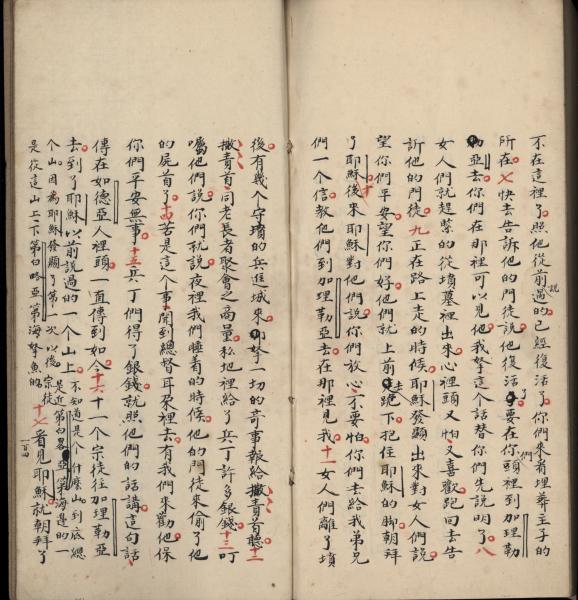 不在這裡了照他從前說過的已經復活了你們來看埋葬主子的
所在七快去告訴他的門徒說他復活了要在你們頭裡到加理勒
亞去你們在那裡可以見他我拏這个話替你們先說明了八
女人們就趕緊的從墳墓裡出來心裡頭又怕又喜歡跑回去告
訴他的門徒九正在路上走的時候耶穌發顯出來對女人們說
望你們平安望你們好他們就上前去跪下抱住耶穌的脚朝拜
了耶穌十後來耶穌對他們說你們放心不要怕你們去給我弟兄
們一个信教他們到加理勒亞去在那裡見我十一女人們離了墳
後有幾个守墳的兵進城來拏一切的奇事報給撒責首聽十二
撒責首同老長者聚會之商量私地裡給了兵丁許多銀錢十三叮
囑他們說你們就說夜裡我們睡着的時候他的門徒來偷了他
的屍首了十四若是這个事聞到總督耳朶裡去有我們來勸他保
你們平安無事十五兵丁們得了銀錢就照他們的話講這句話
傳在如德亞人裡頭一直傳到如今十六十一个宗徒往加理勒亞
去到了耶穌以前說過的一个山上不知道是个什麼山到底總是近第白畧亞第海邊的一
个山因為耶穌發顯了第一次以後宗徒
是從這山上下第白畧亞第海拏魚的十七看見耶穌就朝拜了